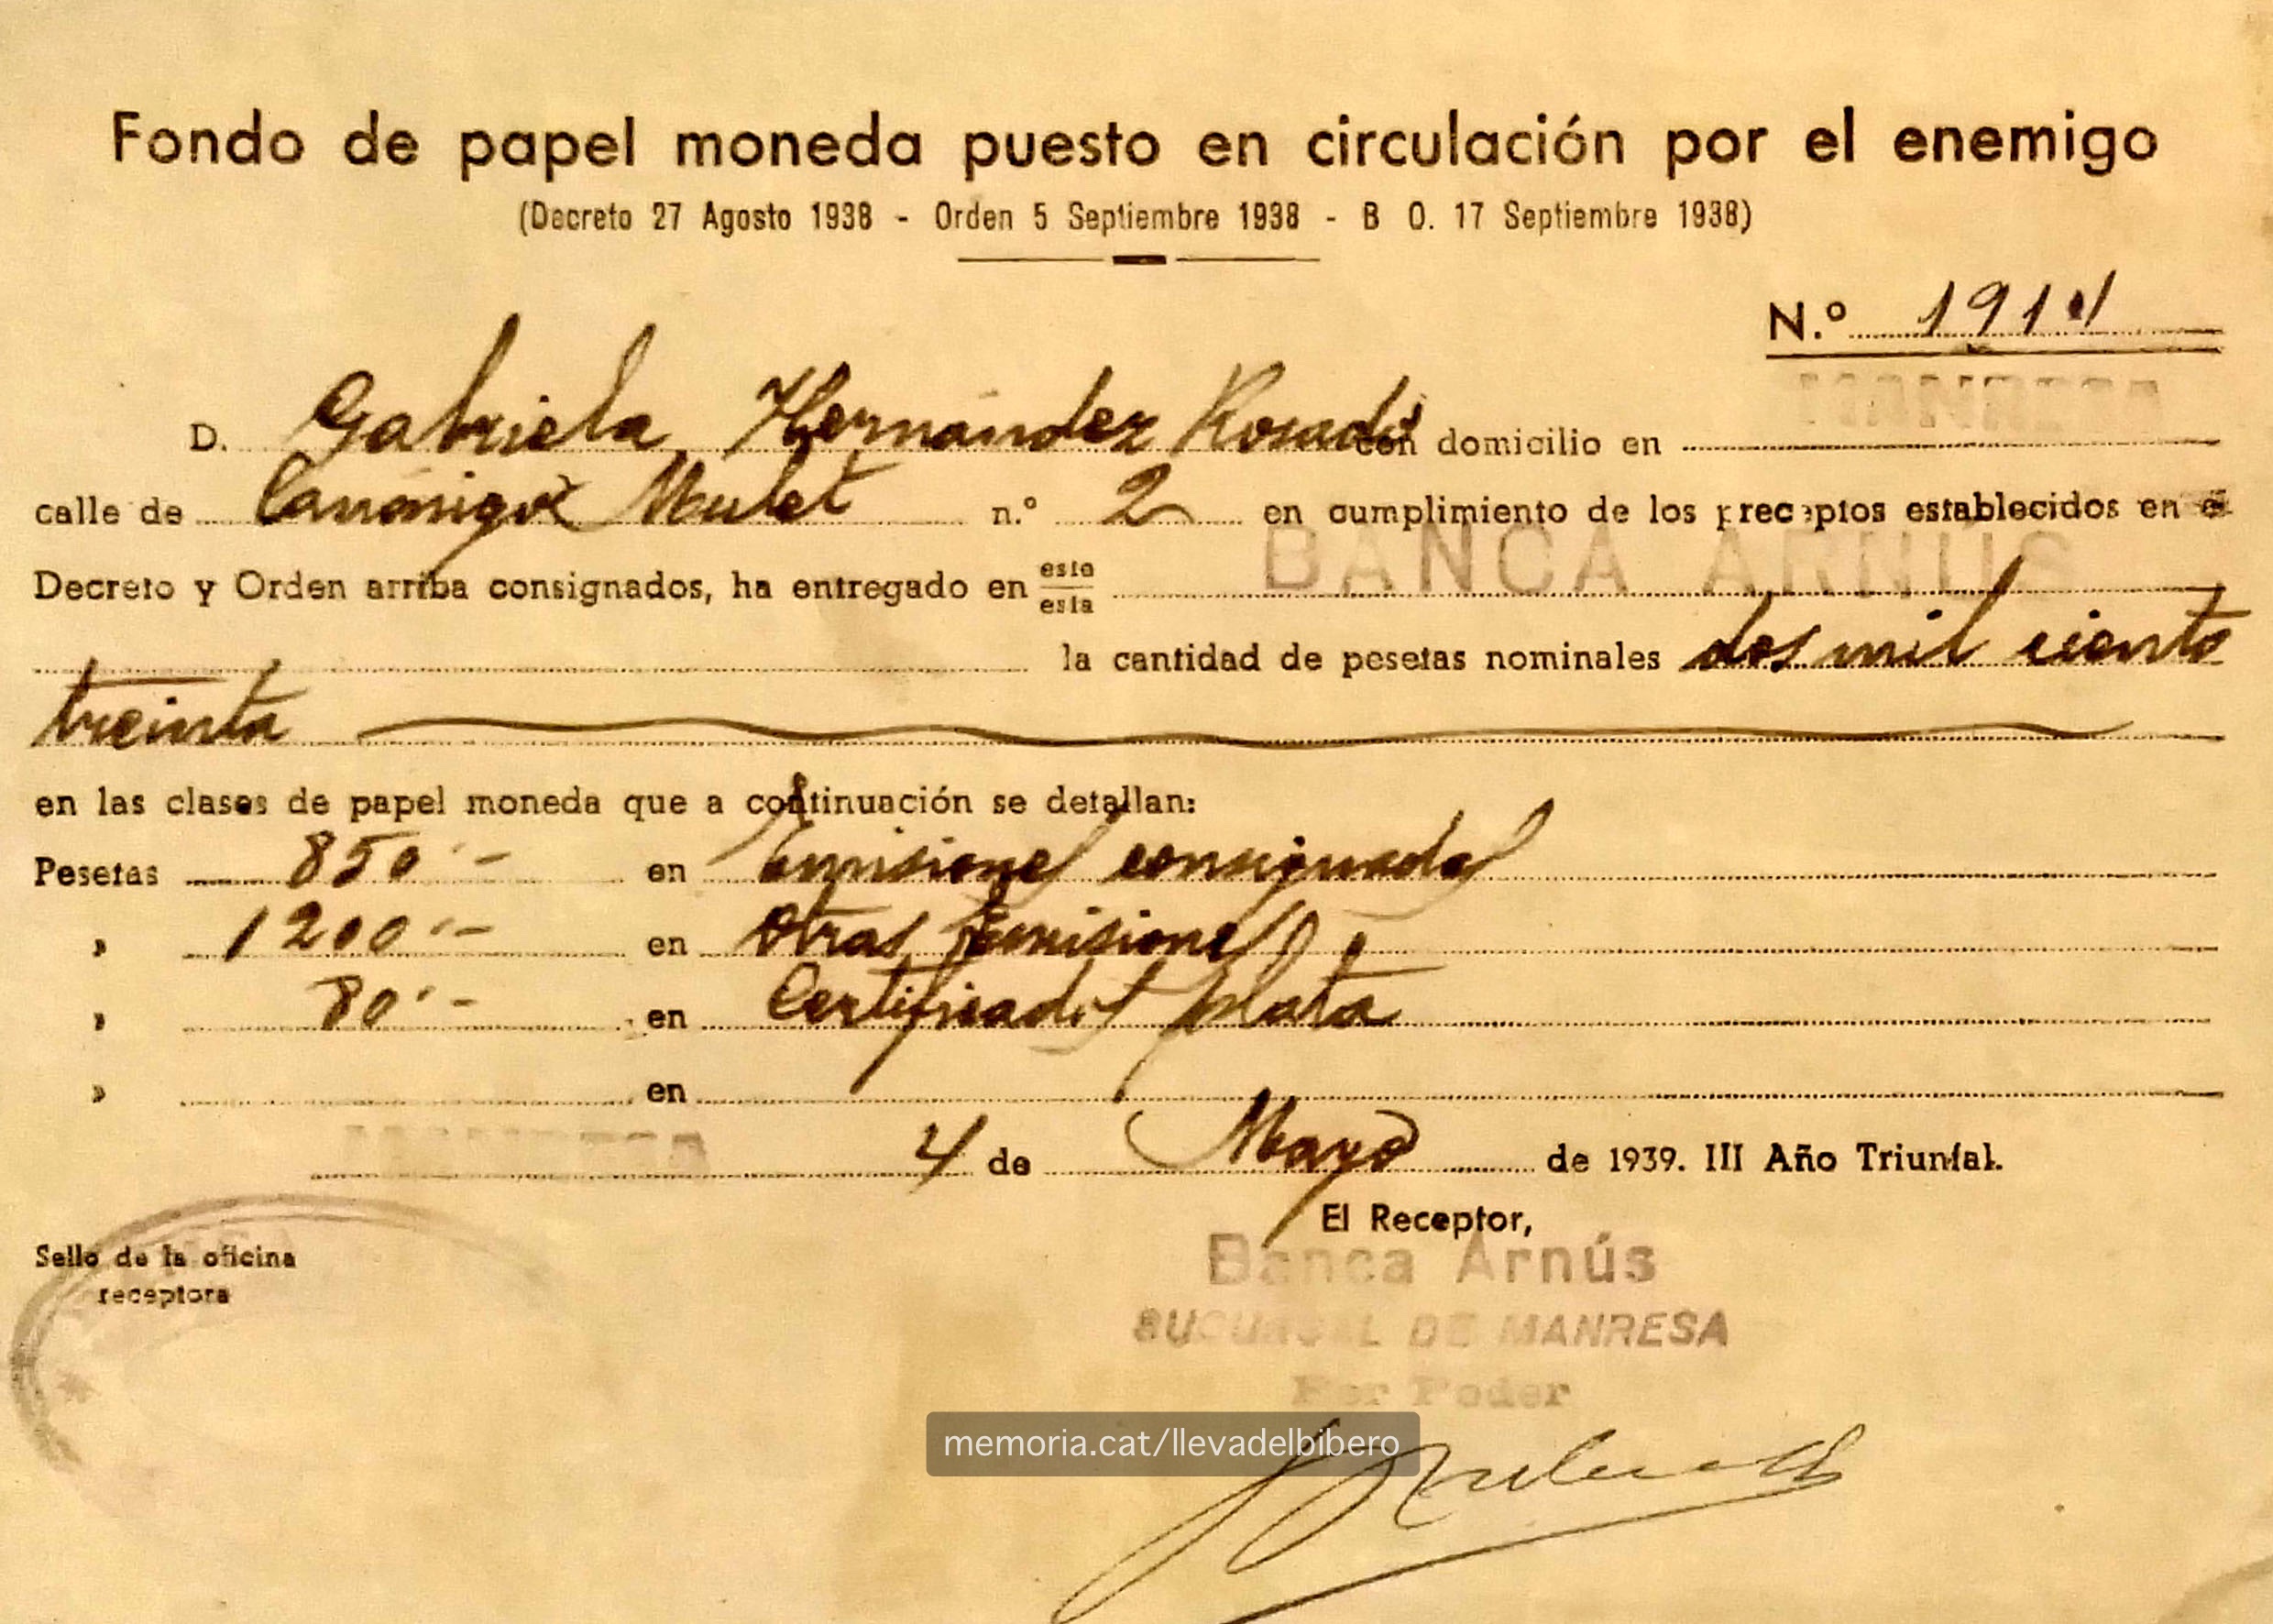 Fondo de papel moneda puesto en circulación por el enemigo
(Decreto 27 Agosto 1938 - Orden 5 Septiembre 1938 - B O. 17 Septiembre 1938)
N.º 1911
MANRESA
D. Gabriela Hernández Rosado con domicilio en
calle de Canónigo Mulet n.º 2 en cumplimiento de los preceptos establecidos en el
Decreto y Orden arriba consignados, ha entregado en este/esta BANCA ARNÚS
la cantidad de pesetas nominales dos mil ciento
treinta
en las clases de papel moneda que a continuación se detallan:
Pesetas 850'- en Emisiones consignadas
» 1200'- en Otras Emisiones
» 80'- en Certificados plata
» en
MANRESA 4 de Mayo de 1939. III Año Triunfal.
El Receptor,
Sello de la oficina
receptora
Banca Arnús
SUCURSAL DE MANRESA
Por Poder
memoria.cat/llevadelbibero